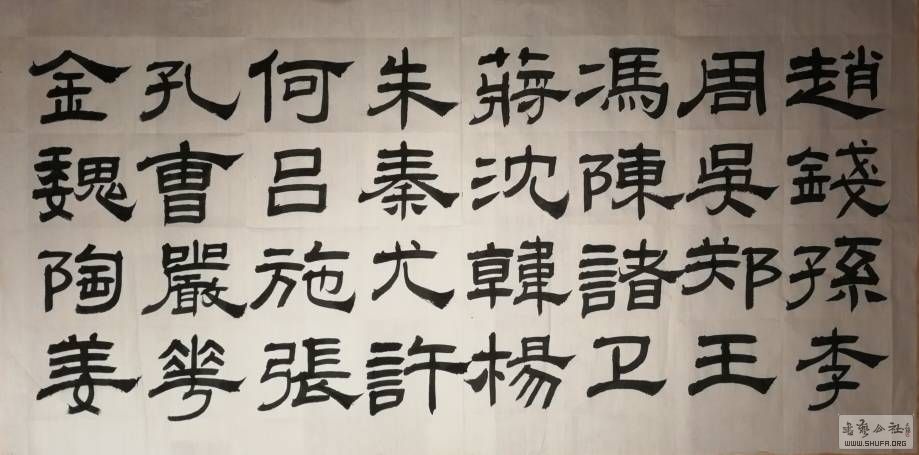 趙錢孫李
周吳郑王
馮陳諸卫
蔣沈韓楊
朱秦尤許
何吕施張
孔曹嚴華
金魏陶姜
书艺公社
WWW.SHUFA.ORG